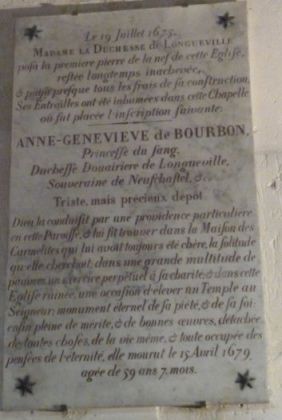 Le 19 Juillet 1675.
MADAME LA DUCHESSE de LONGUEVILLE
posa la premiere pierre de la nef de cette Eglise,
restée longtemps inachevée,
& paya presque tous les frais de sa construction,
Ses Entrailles ont été inhumées dans cette Chapelle
où fut placée l'inscription suivante:
ANNE-GENEVIEVE de BOURBON,
Princesse du sang,
Duchesse Douairiere de Longueville,
Souveraine de Neufchastel, &c.
Triste, mais precieux depôt
Dieu la conduisit par une providence particuliere
en cette Paroisse, & lui fit trouver dans la Maison des
Carmelites qui lui avoit toujours été chère, la solitude
qu'elle cherchoit, dans une grande multitude de
pauvres, un exercice perpétuel à sa charité, & dans cette
Eglise ruinée, une occasion d'élever un Temple au
Seigneur; monument éternel de sa piété, & de sa foi:
enfin pleine de mérite, & de bonnes œuvres, détachée
de toutes choses, de la vie même, & toute occupée des
pensées de l'éternité, elle mourut le 15 Avril 1679,
agée de 59 ans 7. mois.